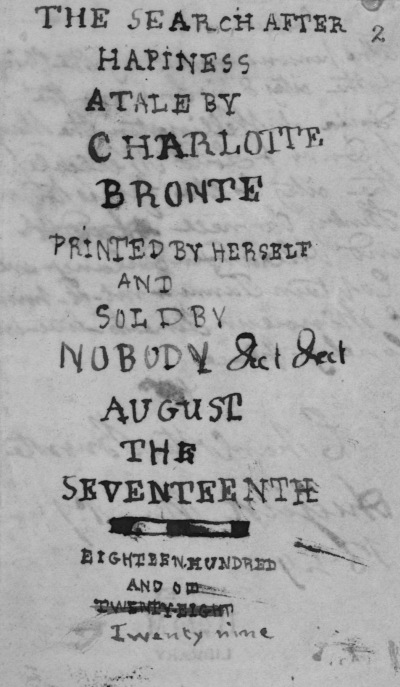 THE SEARCH AFTER
2
HAPINESS
A TALE BY
CHARLOTTE
BRONTE
PRINTED BY HERSELF
AND
SOLD BY
NOBODY &ct &ct
AUGUST
THE
SEVENTEENTH
EIGHTEEN HUNDRED
AND
TWENTY-EIGHT
Twenty nine